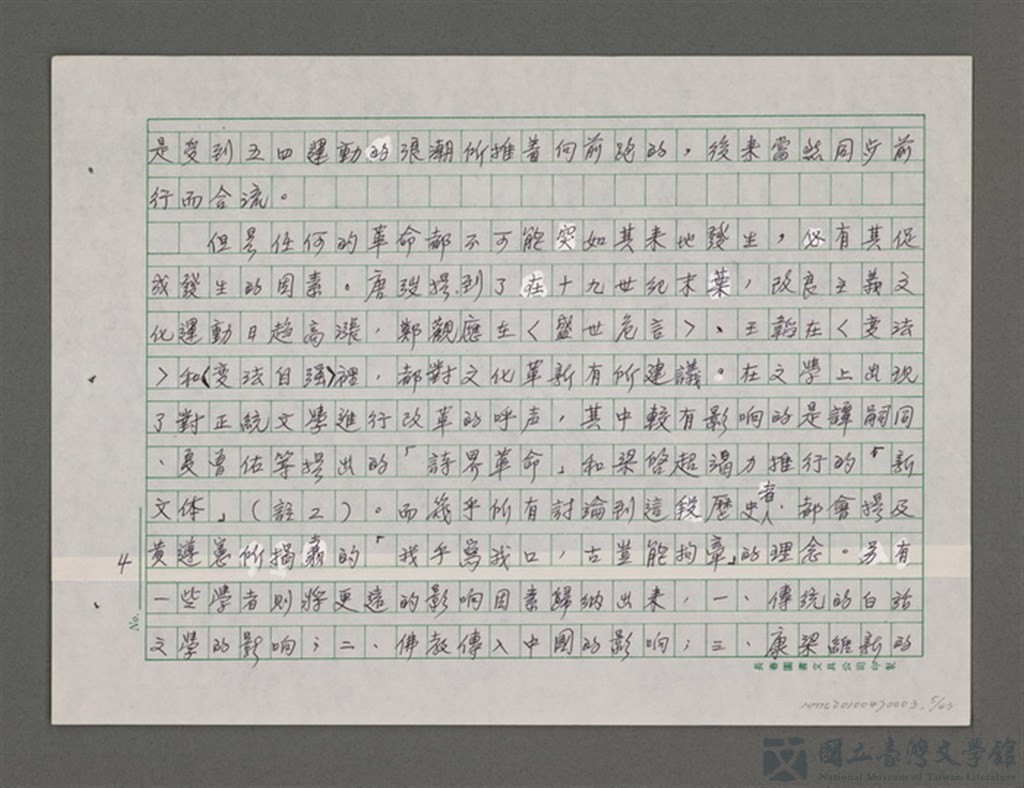 是受到五四運動的漲潮所推着向前跑的，後来當然同步前
行而合流。
但是任何的革命都不可能突如其来地發生，必有其促
成發生的因素。唐弢提到了在十九世紀末葉，改良主義文
化運動日趋高漲，鄭觀應在〈盛世危言〉、王韜在〈变法
〉和〈变法自强〉裡，都對文化革新有所建議。在文學上出現
了對正統文學進行改革的呼声，其中較有影响的是譚嗣同
、夏曾佑等提出的「詩界革命」和梁啓超竭力推行的「新
文体」（註2）。而幾乎所有討論到這段歷史者，都會提及
黄遵憲所揭櫫的「我手寫我口，古豈能拘牽」的理念。另有
一些學者則將更遠的影响因素歸納出来，一、傳統的白話
文學的影响；二、佛教傳入中國的影响；三、康梁維新的
4
No.
長春圖書文具公司印製
國立臺灣文學館
National Museum of Taiwan Literature